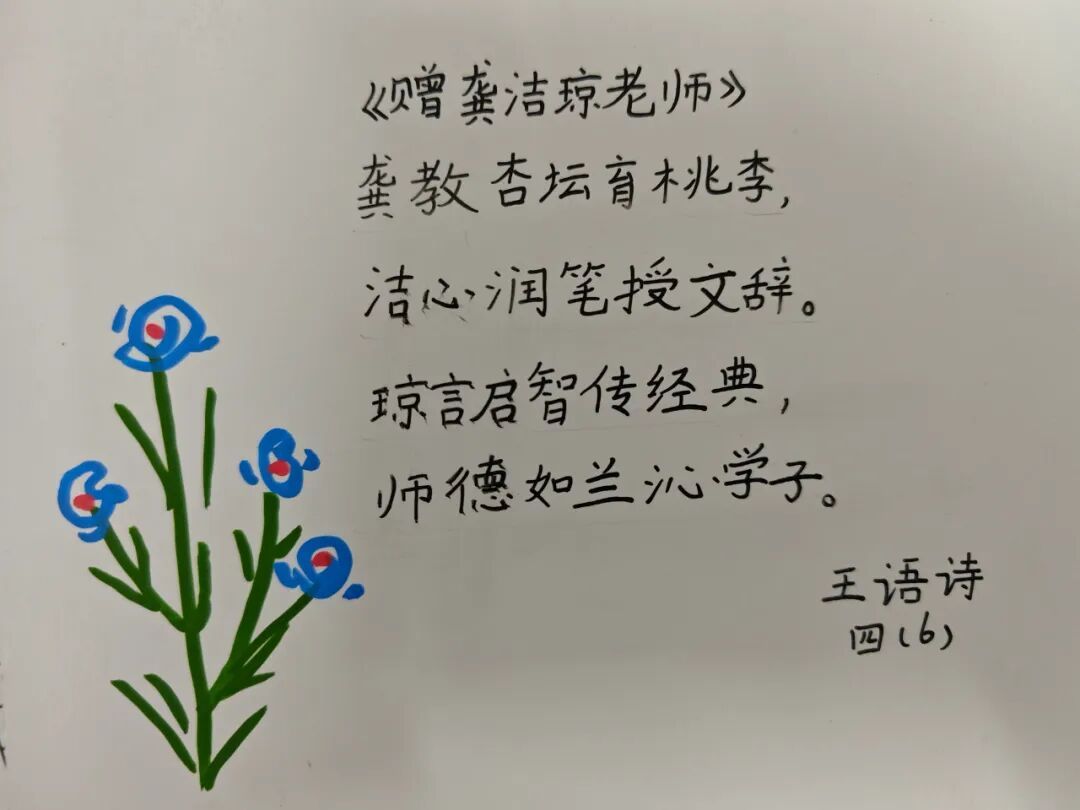 《赠龚洁琼老师》
龚教杏坛育桃李,
洁心润笔授文辞。
琼言启智传经典,
师德如兰沁学子。
王语诗
四(6)